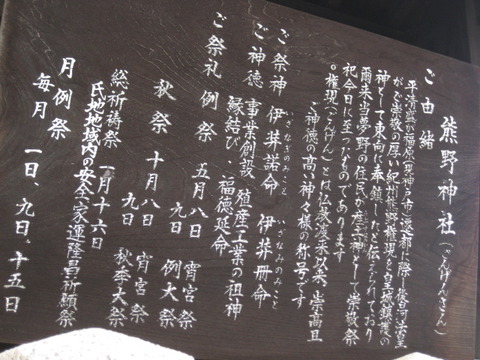 熊野神社(ごんげんさん)
ご由緒
平清盛が福原(現神戸市)遷都に際し後白河法皇
がご崇敬の厚い紀州熊野権現を皇城鎮護の
神として東向に奉鎮したと伝えられており
爾来当夢野の住民が産土神として崇敬祭
祀今日に至ったものであります
○権現(ごんげん)とは仏教渡来以来、崇高且
ご神徳の高い神々様の称号です
ご祭神 伊弉諾命 伊弉冊命
いざなぎのみこと いざなみのみこと
ご神徳 事業創設 殖産工業の祖神
縁結び、福徳延命
ご祭礼 例祭 五月八日 宵宮祭
九日 例大祭
秋祭 十月八日 宵宮祭
九日 秋季大祭
総祈祷祭 一月十六日
氏地地域内の安全、家運隆昌祈願祭
月例祭
毎月 一日、九日、十五日